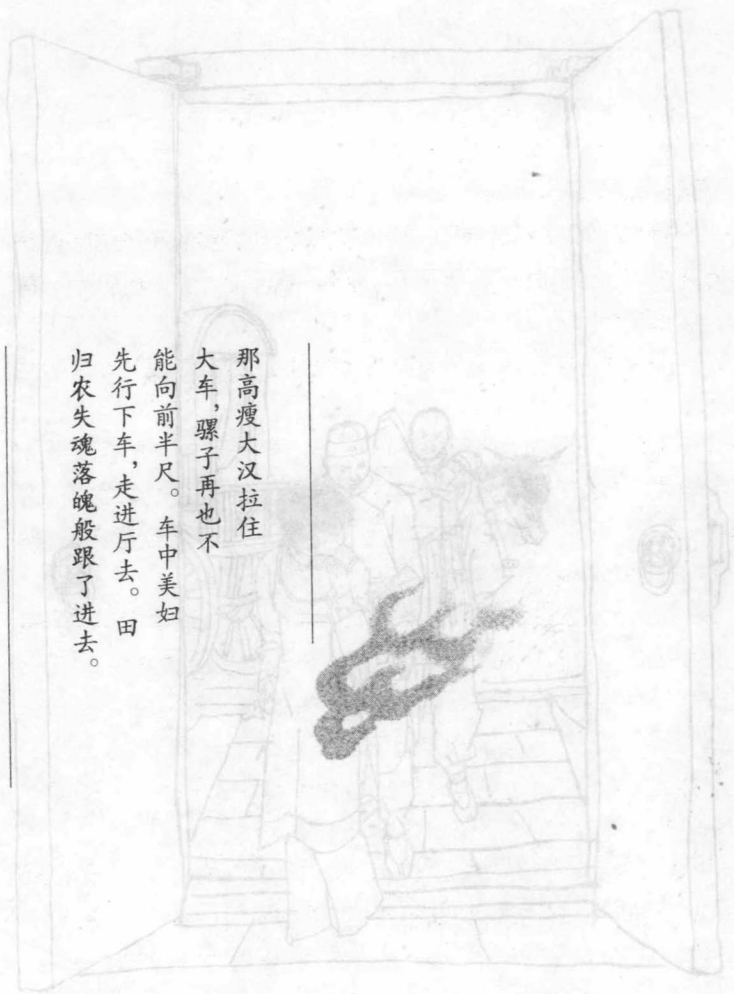 那高瘦大汉拉住
大车，骡子再也不
能向前半尺。车中美妇
先行下车，走进厅去。田
归农失魂落魄般跟了进去。